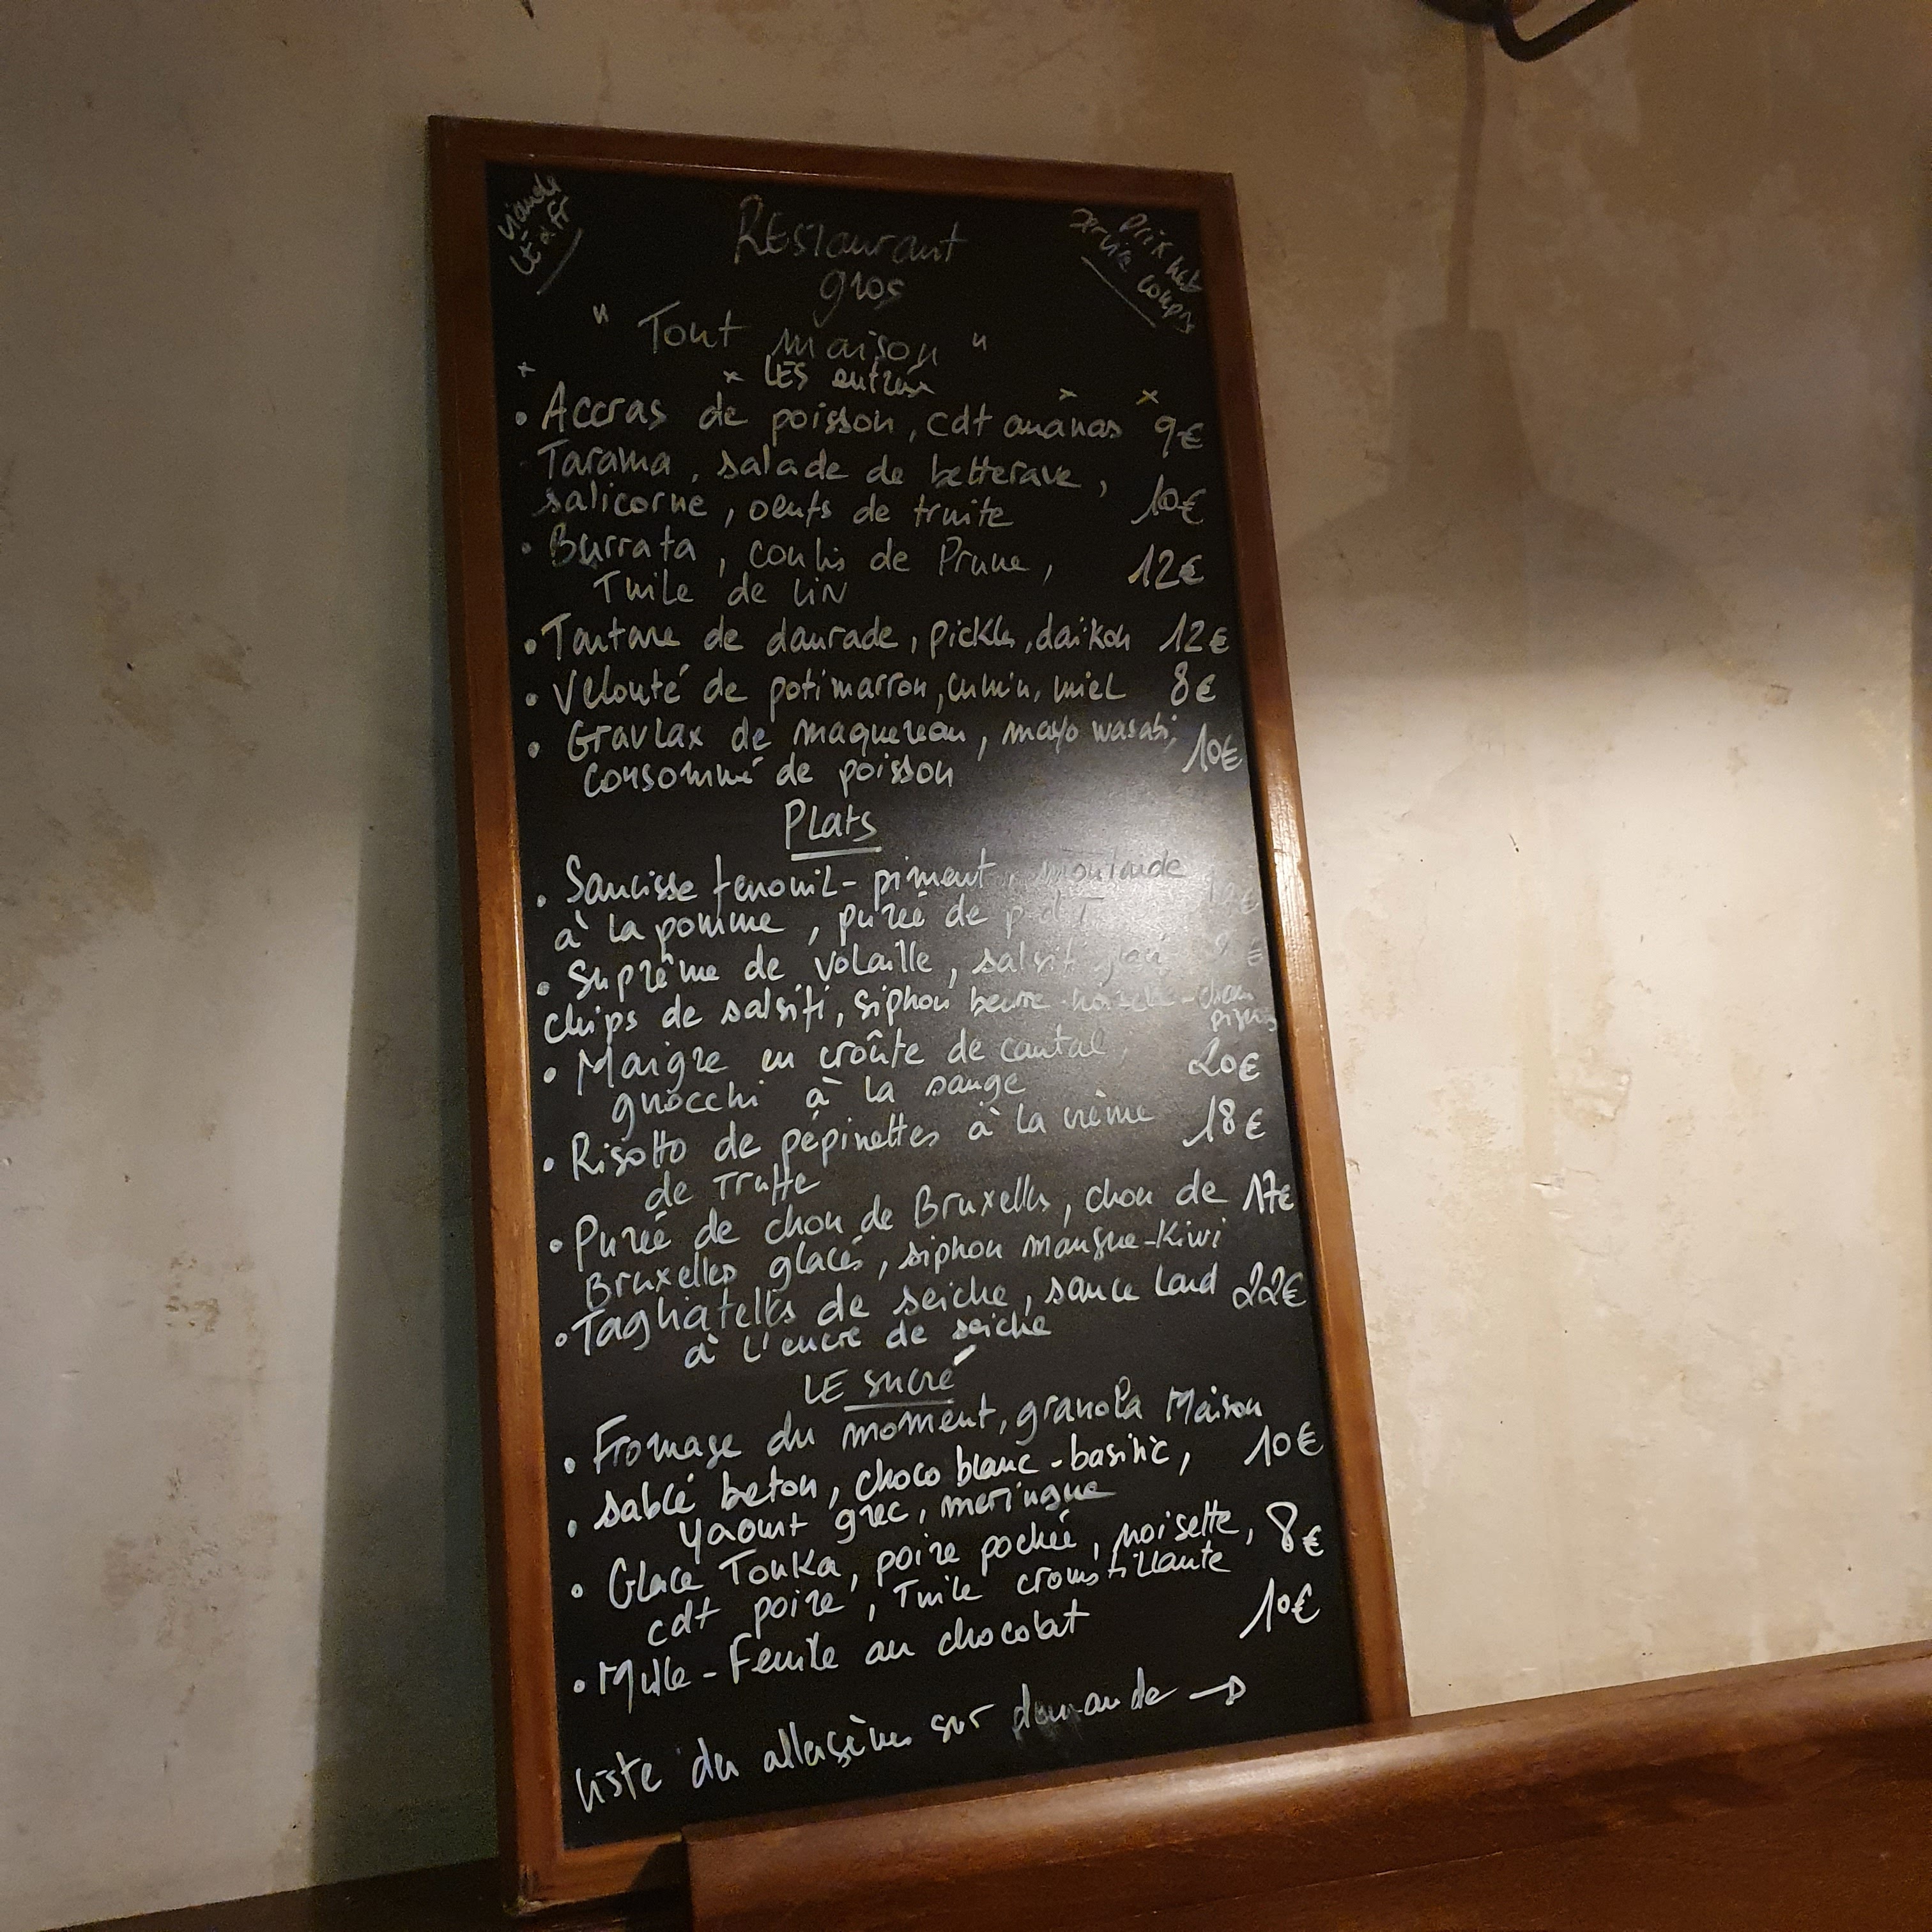 viande
UE & Fr
Prix nets
service compris
REStaurant
gros
" Tout maison "
LES entrées
• Accras de poisson, cdt ananas 9€
Tarama, salade de betterave,
salicorne, oeufs de truite 10€
• Burrata, coulis de Prune, 12€
Tuile de LiN
• Tartare de daurade, pickles, daïkon 12€
• Velouté de potimarron, cumin, miel 8€
• Gravlax de maquereau, mayo wasabi, 10€
consommé de poisson
PLats
• Saucisse fenouil-piment, moutarde
à la pomme, purée de p d T
• Suprême de volaille, salsifi
chips de salsifi, siphon beurre noisette-cham
pignons
• Maigre en croûte de cantal, 20€
gnocchi à la sauge
• Risotto de pépinettes à la crème 18€
de Truffe
• Purée de chou de Bruxelles, chou de 17€
Bruxelles glacés, siphon mangue-Kiwi
• Tagliatelles de seiche, sauce Lard 22€
à l'encre de seiche
LE sucré
• Fromage du moment, granola Maison
• sablé beton, choco blanc-basilic, 10€
Yaourt grec, meringue
• Glace Tonka, poire pochée, noisette, 8€
cdt poire, Tuile croustillante
• Mille-Feuille au chocolat 10€
liste des allergènes sur demande →